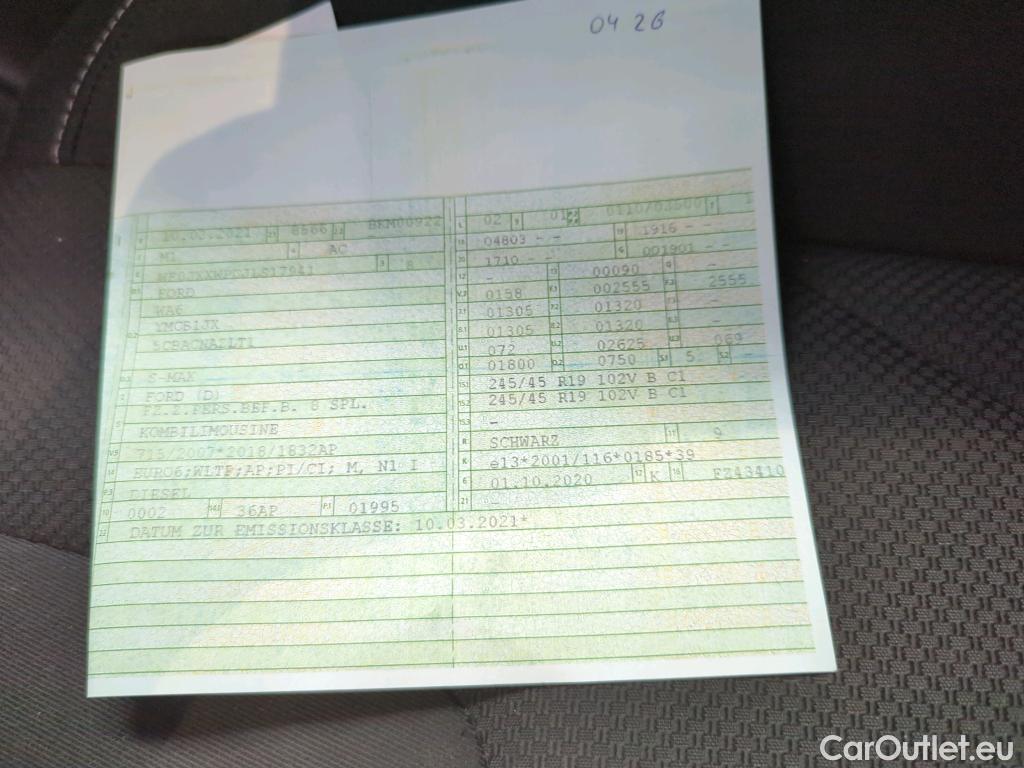 04 26
10.03.2021 8566 BKM00922
M1 AC 8
WF0JXXWPCJLS17941
FORD
WA6
YMCB1JX
5CBACNAZLT1
S-MAX
FORD (D)
FZ.Z.PERS.BEF.B. 8 SPL.
KOMBILIMOUSINE
715/2007*2018/1832AP
EURO6;WLTP;AP;PI/CI; M, N1 I
DIESEL
0002 14.1 36AP P.1 01995
22 DATUM ZUR EMISSIONSKLASSE: 10.03.2021*
02 9 01 0110/03500 1
04803 - - 19 1916 - -
1710 - - G 001901 - -
- 13 00090 Q -
V.7 0158 F.1 002555 F.2 2555
7.1 01305 7.2 01320 7.3 -
8.1 01305 8.2 01320 8.3 -
U.1 072 U.2 02625 U.3 069
O.1 01800 O.2 0750 S.1 5 S.2
15.1 245/45 R19 102V B C1
15.2 245/45 R19 102V B C1
15.3 -
R SCHWARZ 11 9
K e13*2001/116*0185*39
6 01.10.2020 17 K 16 FZ43410
21
CarOutlet.eu